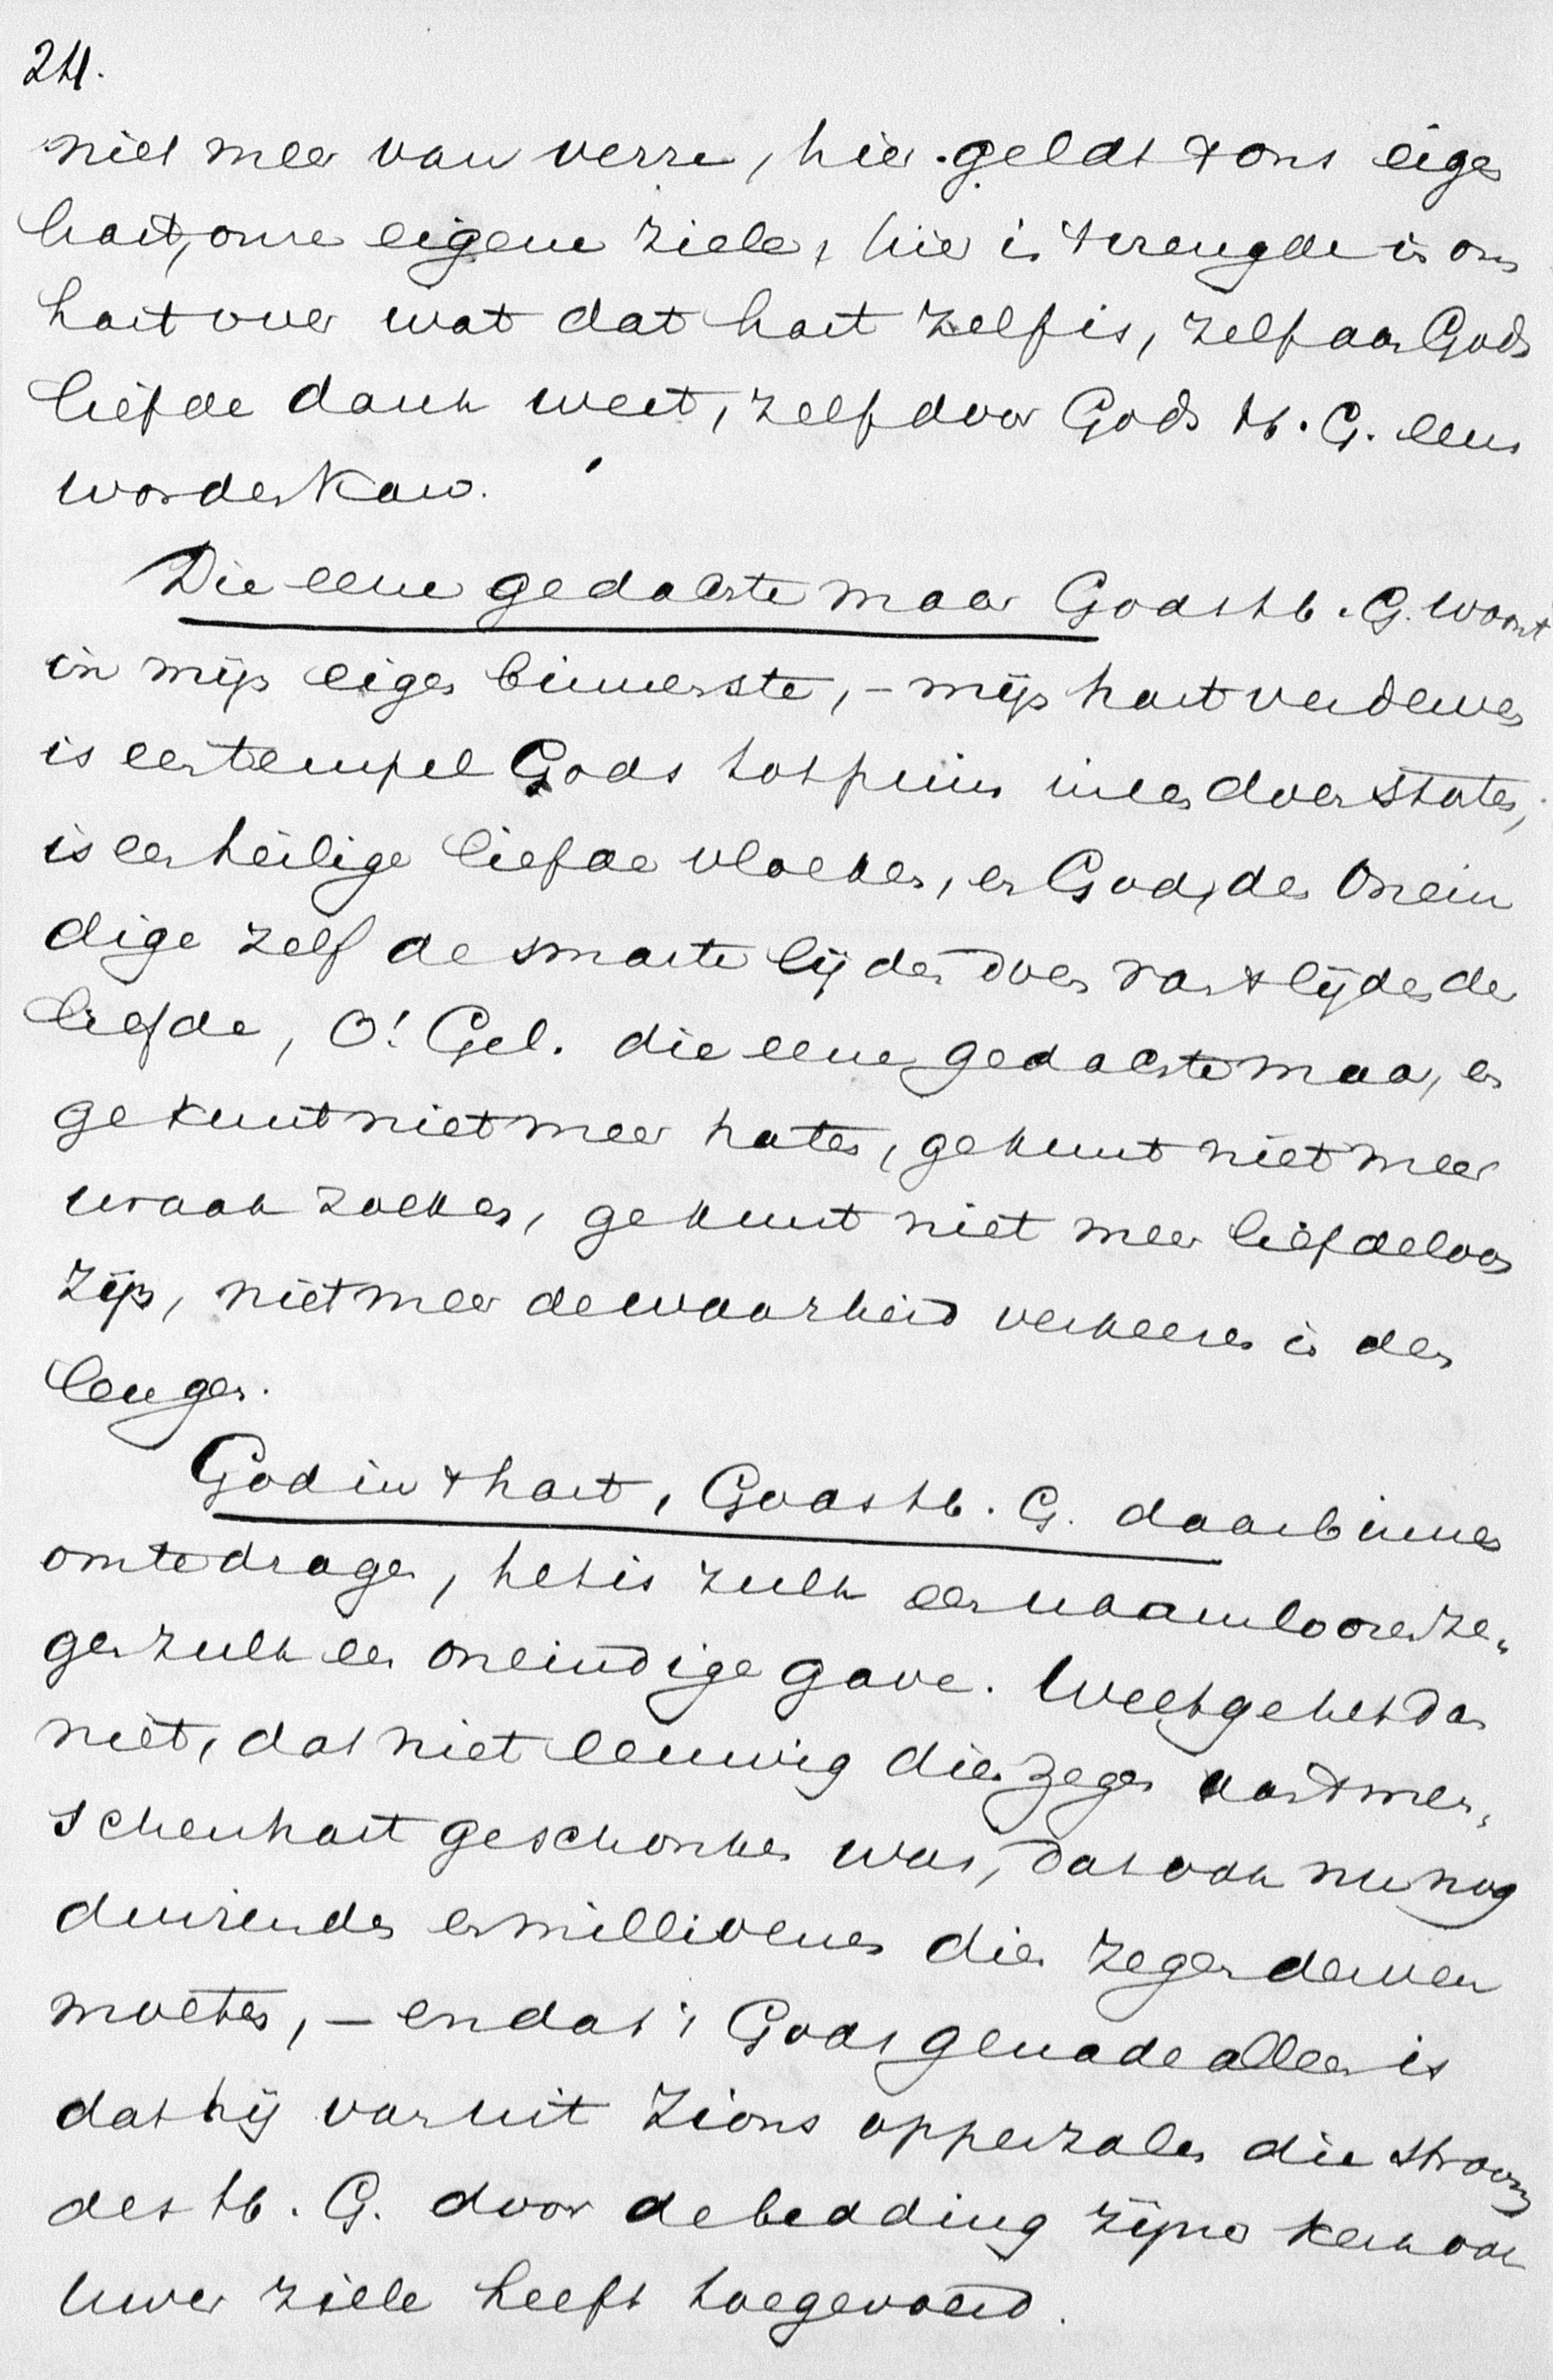 24.
niet meer van verre, hier geldt 't ons eigen
hart, onze eigene ziele, hier is 't vreugde in ons
hart over wat dat hart zelf is, zelf aan Gods
liefde dank weet, zelf door Gods H. G. eens
worden kan.
Die eene gedachte maar Gods H. G. woont
in mijn eigen binnenste, – mijn hart verderven
is een tempel Gods tot puin ineen doen storten,
is een heilige liefde vloeken, en God, den Onein
dige zelf de smarte lijden doen van 't lijden der
liefde, O! Gel. die eene gedachte maar, en
ge kunt niet meer haten, ge kunt niet meer
wraak zoeken, ge kunt niet meer liefdeloos
zijn, niet meer de waarheid verkeeren in den
leugen.
God in 't hart, Gods H. G. daarbinnen
om te dragen, het is zulk een naamloozen ze-
gen zulk een oneindige gave. Weet ge het dan
niet, dat niet eeuwig die zegen aan 't men-
schenhart geschonken was, dat ook nu nog
duizenden en millioenen dien zegen derven
moeten, – en dat 's Gods genade alleen is
dat hij van uit Zions opperzalen die stroom
des H. G. door de bedding zijner kerk ook
Uwer ziele heeft toegevoerd.